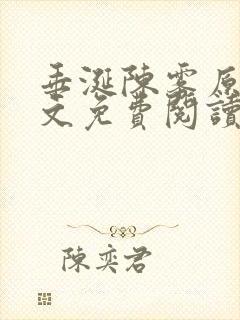 垂涎陳雾原
文免費閱讀
陳奕君